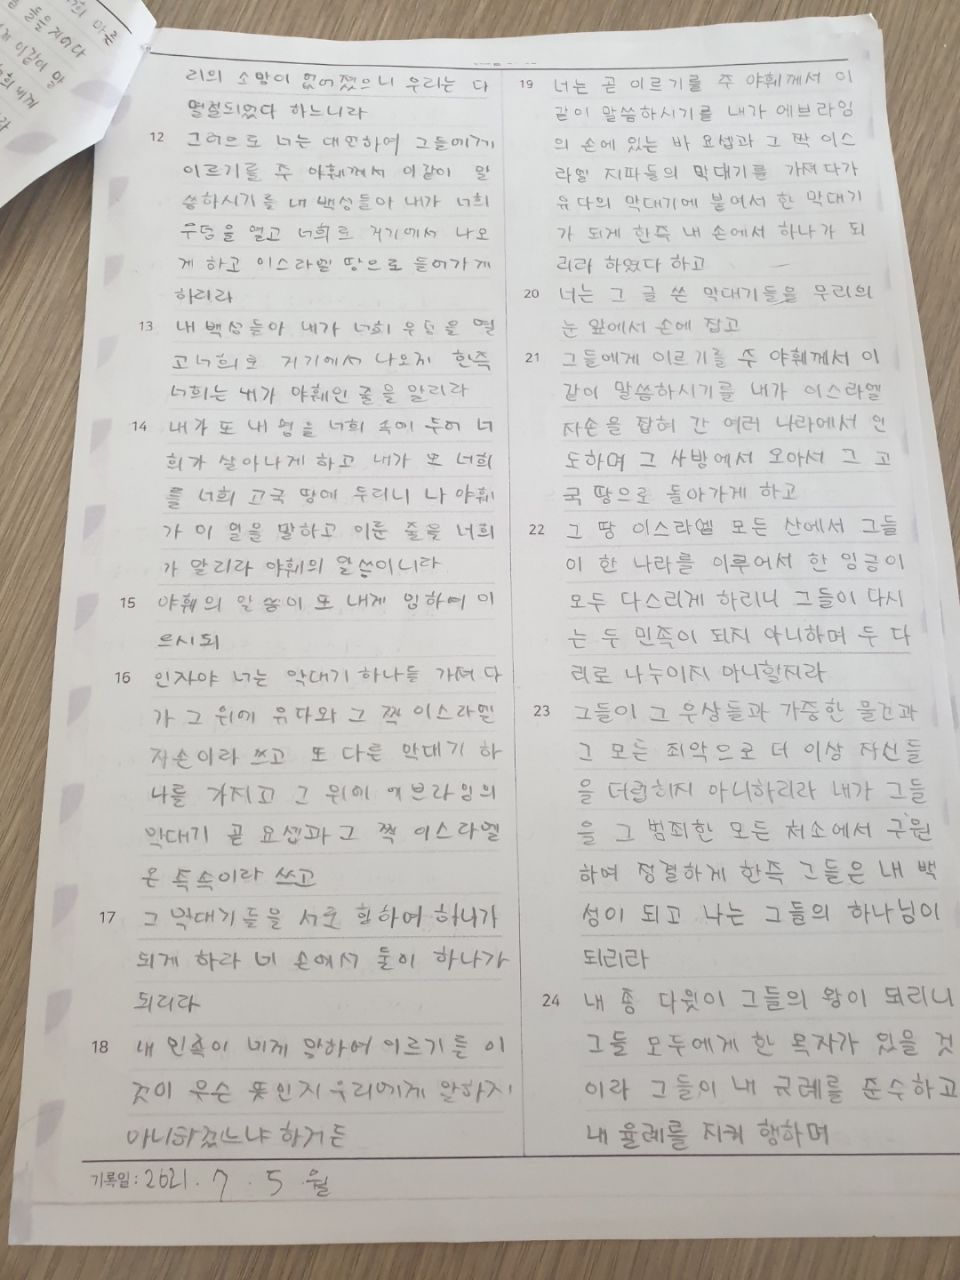 리의 소망이 없어졌으니 우리는 다
멸절되었다 하느니라
12 그러므로 너는 대언하여 그들에게
이르기를 주 야훼께서 이같이 말
씀하시기를 내 백성들아 내가 너희
무덤을 열고 너희로 거기에서 나오
게 하고 이스라엘 땅으로 들어가게
하리라
13 내 백성들아 내가 너희 무덤을 열
고 너희로 거기에서 나오게 한즉
너희는 내가 야훼인 줄을 알리라
14 내가 또 내 영을 너희 속에 두어 너
희가 살아나게 하고 내가 또 너희
를 너희 고국 땅에 두리니 나 야훼
가 이 일을 말하고 이룬 줄을 너희
가 알리라 야훼의 말씀이니라
15 야훼의 말씀이 또 내게 임하여 이
르시되
16 인자야 너는 막대기 하나를 가져다
가 그 위에 유다와 그 짝 이스라엘
자손이라 쓰고 또 다른 막대기 하
나를 가지고 그 위에 에브라임의
막대기 곧 요셉과 그 짝 이스라엘
온 족속이라 쓰고
17 그 막대기들을 서로 합하여 하나가
되게 하라 네 손에서 둘이 하나가
되리라
18 내 민족이 네게 말하여 이르기를 이
것이 무슨 뜻인지 우리에게 말하지
아니하겠느냐 하거든
19 너는 곧 이르기를 주 야훼께서 이
같이 말씀하시기를 내가 에브라임
의 손에 있는 바 요셉과 그 짝 이스
라엘 지파들의 막대기를 가져다가
유다의 막대기에 붙여서 한 막대기
가 되게 한즉 내 손에서 하나가 되
리라 하였다 하고
20 너는 그 글 쓴 막대기들을 무리의
눈 앞에서 손에 잡고
21 그들에게 이르기를 주 야훼께서 이
같이 말씀하시기를 내가 이스라엘
자손을 잡혀 간 여러 나라에서 인
도하며 그 사방에서 모아서 그 고
국 땅으로 돌아가게 하고
22 그 땅 이스라엘 모든 산에서 그들
이 한 나라를 이루어서 한 임금이
모두 다스리게 하리니 그들이 다시
는 두 민족이 되지 아니하며 두 나
라로 나누이지 아니할지라
23 그들이 그 우상들과 가증한 물건과
그 모든 죄악으로 더 이상 자신들
을 더럽히지 아니하리라 내가 그들
을 그 범죄한 모든 처소에서 구원
하여 정결하게 한즉 그들은 내 백
성이 되고 나는 그들의 하나님이
되리라
24 내 종 다윗이 그들의 왕이 되리니
그들 모두에게 한 목자가 있을 것
이라 그들이 내 규례를 준수하고
내 율례를 지켜 행하며
기록일: 2021. 7. 5 월